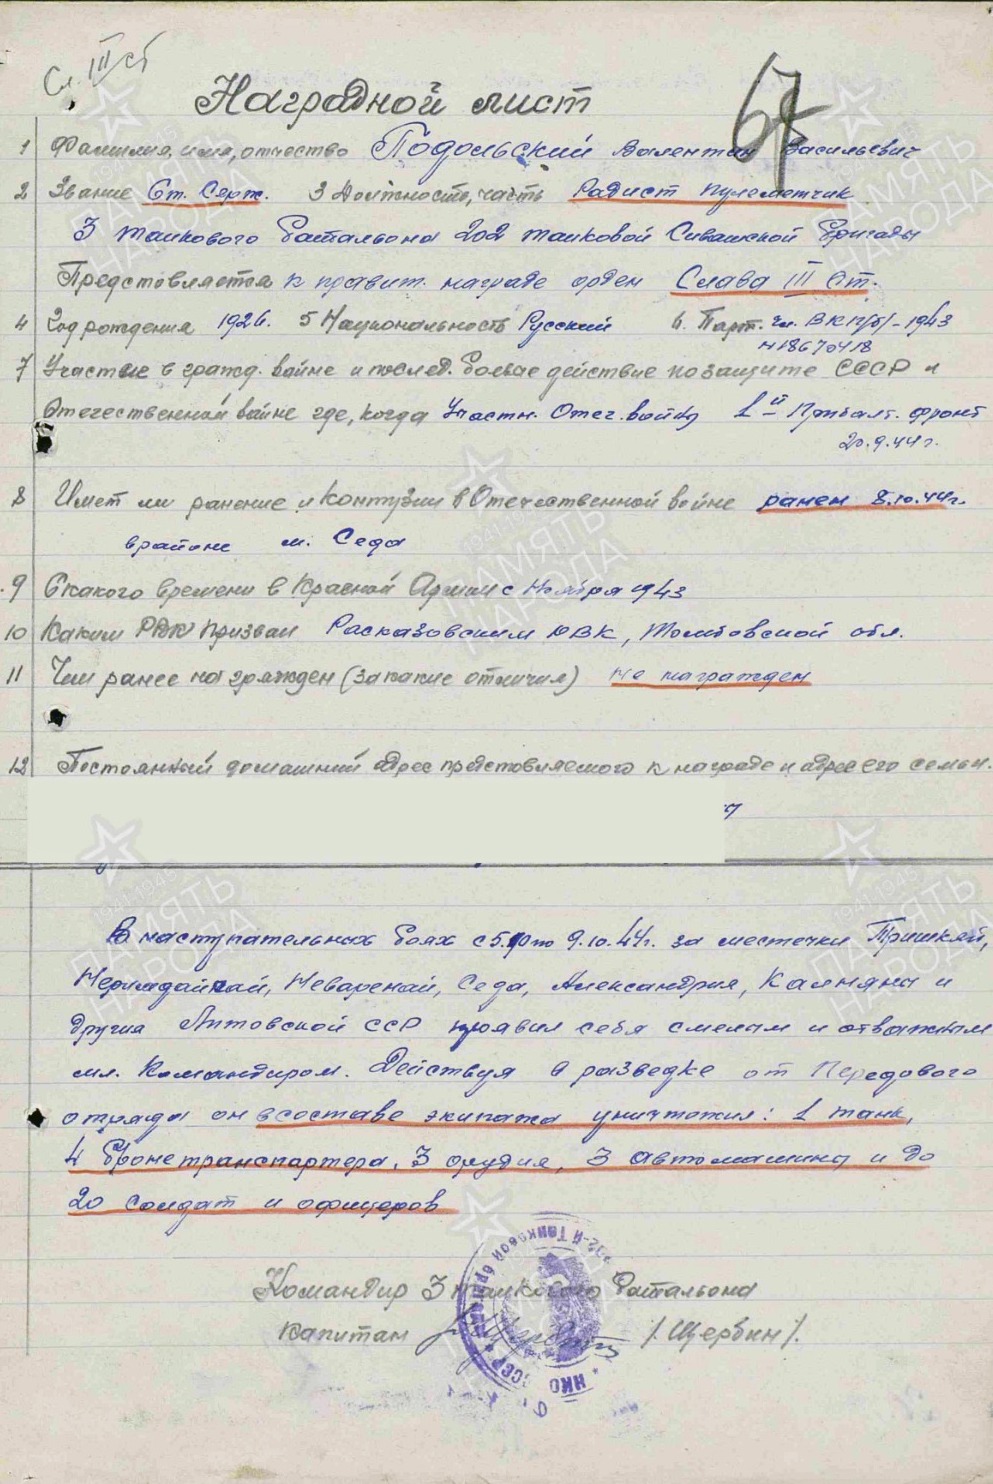 Сл. III ст
67
Наградной лист
1 Фамилия, имя, отчество Подольский Валентин Васильевич
2 Звание Ст. Серж. 3 Должность, часть Радист пулеметчик
3 танкового батальона 202 танковой Сивашской бригады
Представляется к правит. награде орден Слава III ст.
4 Год рождения 1926. 5 Национальность Русский 6. Парт. чл. ВКП(б) - 1943
N 18670418
7 Участие в гражд. войне и послед. боевые действие по защите СССР и
Отечественной войне где, когда Участн. Отеч. войны 1й Прибалт. фронт
20.9.44г.
8 Имет ли ранение и контузии в Отечественной войне ранен 8.10.44г.
в районе м. Седа
9 С какого времени в Красной Армии с Ноября 1943
10 Каким РВК призван Расказовским РВК, Тамбовской обл.
11 Чем ранее награжден (за какие отличия) не награжден
12 Постоянный домашний адрес представляемого к награде и адрес его семьи.
В наступательных боях с 5. по 9.10.44г. за местечки Тришкяй,
Невареной, Седа, Александрия, Калняны и
другия Литовской ССР проявил себя смелым и отважным
мл. командиром. Действуя в разведке от Передового
отряда он в составе экипажа уничтожил: 1 танк,
4 бронетранспортера, 3 орудия, 3 автомашины и до
20 солдат и офицеров
Командир 3 танкового батальона
капитан /Щербин/.
НКО СССР
Танковой бригады
ПАМЯТЬ НАРОДА
1941-1945